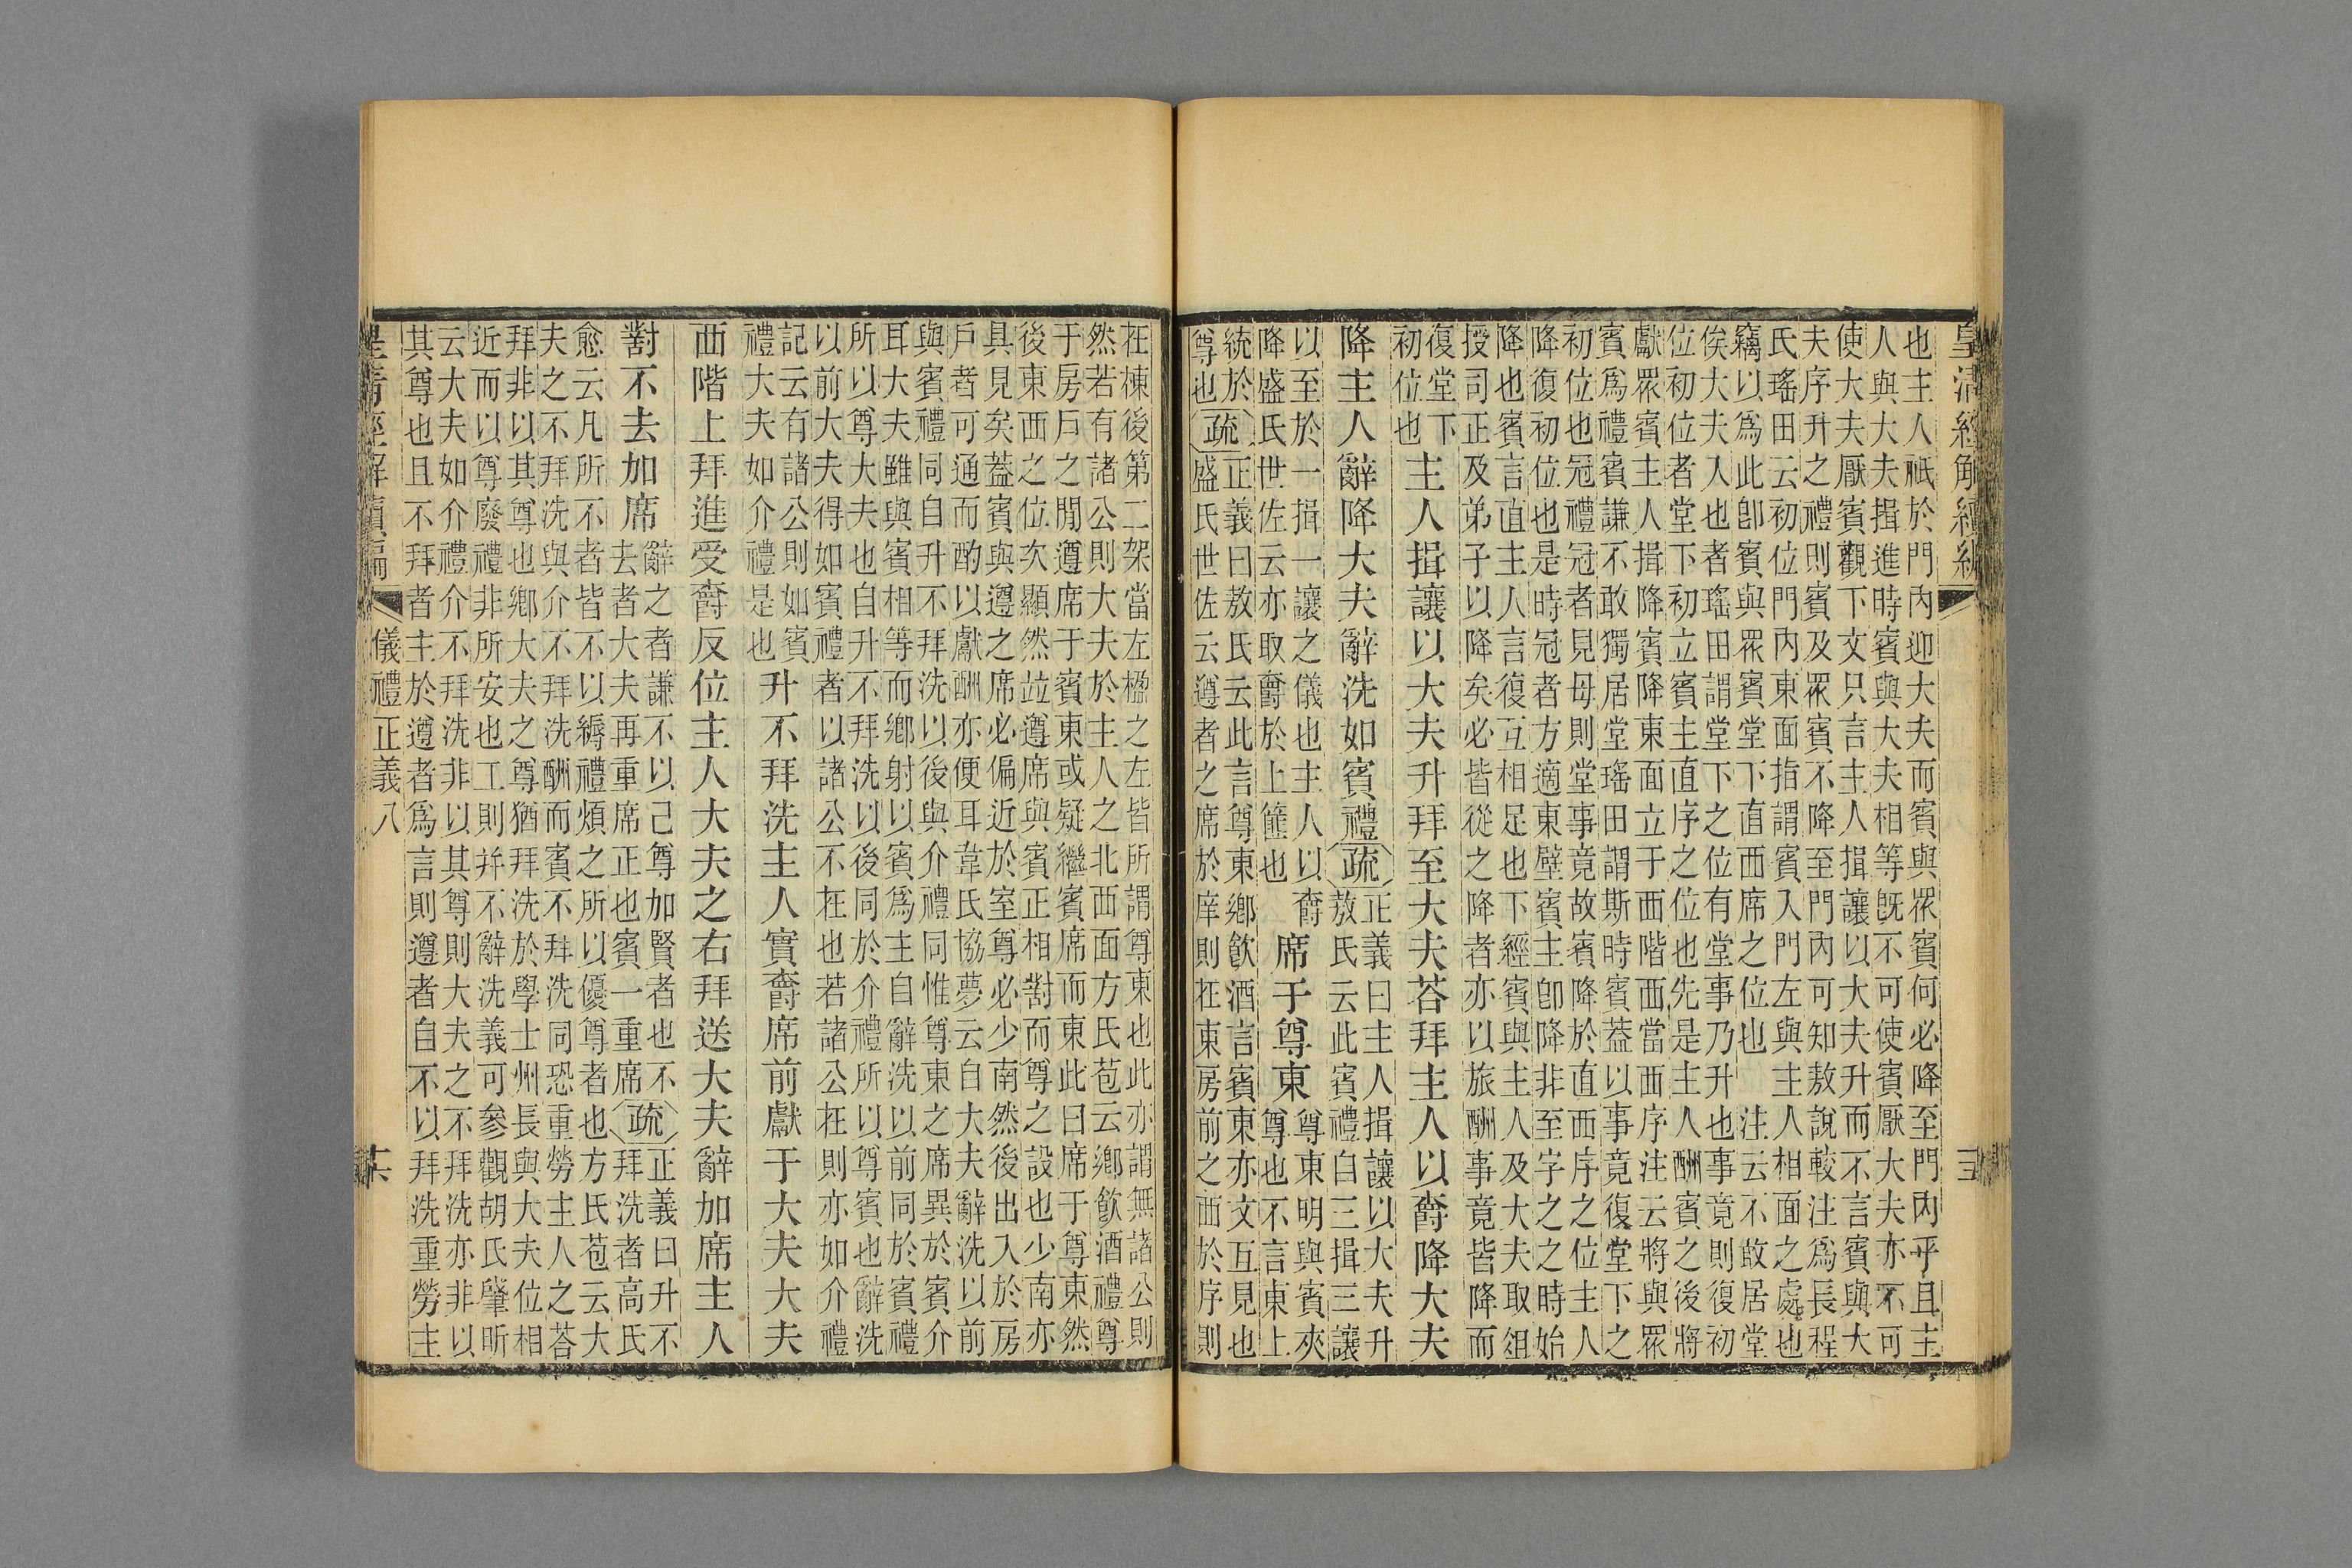 皇清經解續編
也主人祇於門內迎大夫而賓與眾賓何必降至門內乎且主
人與大夫揖進時賓與大夫相等既不可使賓厭大夫亦不可
使大夫厭賓觀下文只言主人揖讓以大夫升而不言賓與大
夫序升之禮則賓及眾賓不降至門內可知敖說較注為長程
氏瑤田云初位門內東面指謂賓入門左與主人相面之處也
竊以為此卽賓與眾賓堂下直西席之位也　注云不敢居堂
俟大夫入也者瑤田謂堂下之位有堂事乃升也事竟則復初
位初位者堂下初立賓主直序之位也先是主人酬賓之後將
獻眾賓主人揖降賓降東面立于西階西當西序注云將與眾
賓為禮賓謙不敢獨居堂瑤田謂斯時賓蓋以事竟復堂下之
初位也冠禮冠者見母則堂事竟故賓降於直西序之位主人
降復初位也是時冠者方適東壁賓主卽降非至字之之時始
降也賓言直主人言復互相足也下經賓與主人及大夫取俎
授司正及弟子以降矣必皆從之降者亦以旅酬事竟皆降而
復堂下
初位也
主人揖讓以大夫升拜至大夫荅拜主人以爵降大夫
降主人辭降大夫辭洗如賓禮疏
正義曰主人揖讓以大夫升
敖氏云此賓禮白三揖三讓
以至於一揖一讓之儀也主人以爵
降盛氏世佐云亦取爵於上篚也
席于尊東
尊東明與賓夾
尊也不言東上
統於
尊也
疏
正義曰敖氏云此言尊東鄉飲酒言賓東亦文互見也
盛氏世佐云遵者之席於庠則在東房前之西於序則
在棟後第二架當左楹之左皆所謂尊東也此亦謂無諸公則
然若有諸公則大夫於主人之北西面方氏苞云鄉飲酒禮尊
于房戶之間遵席于賓東或疑繼賓席而東此曰席于尊東然
後東西之位次顯然竝遵席與賓正相對而尊之設也少南亦
具見矣蓋賓與遵之席必偏近於室尊必少南然後出入於房
戶者可通而酌以獻酬亦便耳韋氏協夢云自大夫辭洗以前
與賓禮同自升不拜洗以後與介禮同惟尊東之席異於賓介
耳大夫雖與賓相等而鄉射以賓為主自辭洗以前同於賓禮
所以尊大夫也自升不拜洗以後同於介禮所以尊賓也辭洗
以前大夫得如賓禮者以諸公不在也若諸公在則亦如介禮
記云有諸公則如賓
禮大夫如介禮是也
升不拜洗主人實爵席前獻于大夫大夫
西階上拜進受爵反位主人大夫之右拜送大夫辭加席主人
對不去加席
辭之者謙不以己尊加賢者也不
去者大夫再重席正也賓一重席
疏
正義曰升不
拜洗者高氏
愈云凡所不者皆不以縟禮煩之所以優尊者也方氏苞云大
夫之不拜洗與介不拜洗酬而賓不拜洗同恐重勞主人之荅
拜非以其尊也鄉大夫之尊猶拜洗於學士州長與大夫位相
近而以尊廢禮非所安也工則并不辭洗義可參觀胡氏肇昕
云大夫如介禮介不拜洗非以其尊則大夫之不拜洗亦非以
其尊也且不拜者主於遵者為言則遵者自不以拜洗重勞主
皇清經解續編
儀禮正義八